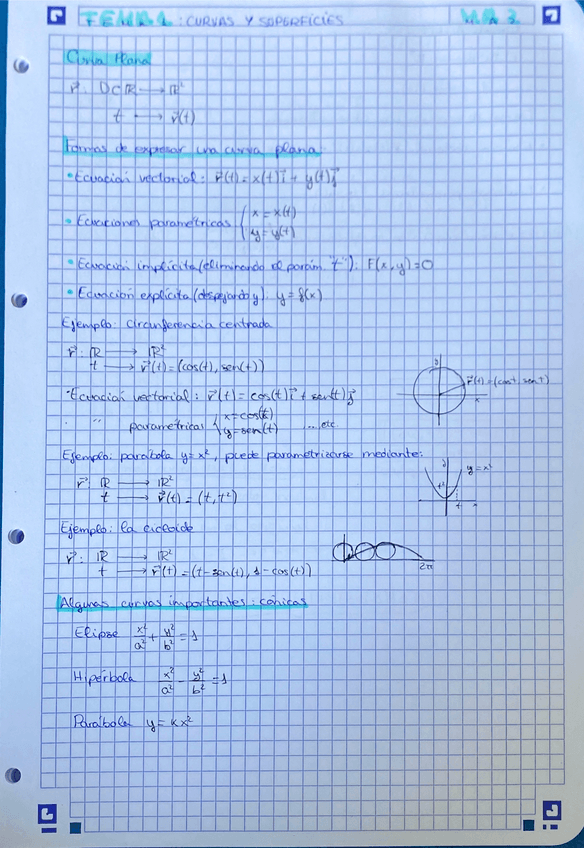 TEMA 1: CURVAS Y SUPERFICIES
Curva Plana
r⃗: D⊂ℝ ⟶ ℝ²
t ⟶ r⃗(t)
Formas de expresar una curva plana
• Ecuación vectorial: r⃗(t) = x(t)i⃗ + y(t)j⃗
• Ecuaciones paramétricas { x = x(t)
y = y(t)
• Ecuación implícita (eliminando el parám. "t"): F(x,y)=0
• Ecuación explícita (despejando y): y = f(x)
Ejemplo: circunferencia centrada
r⃗: ℝ ⟶ ℝ²
t ⟶ r⃗(t) = (cos(t), sen(t))
r⃗(t)=(cos t, sen t)
• Ecuación vectorial: r⃗(t) = cos(t)i⃗ + sen(t)j⃗
" paramétricas { x = cos(t)
y = sen(t) ... etc
Ejemplo: parábola y=x², puede parametrizarse mediante:
r⃗: ℝ ⟶ ℝ²
t ⟶ r⃗(t) = (t, t²)
y = x²
t²
t
Ejemplo: la cicloide
r⃗: ℝ ⟶ ℝ²
t ⟶ r⃗(t) = (t-sen(t), 1-cos(t))
2π
Algunas curvas importantes: cónicas
Elipse x²/a² + y²/b² = 1
Hipérbola x²/a² - y²/b² = 1
Parábola y = kx²